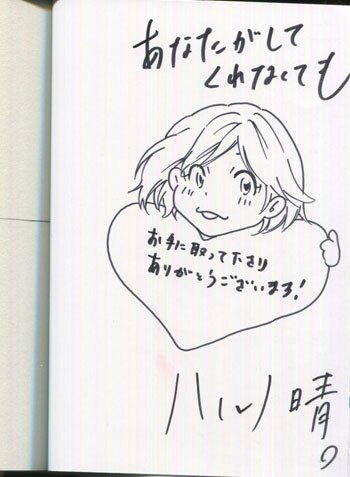 あなたがして
くれなくても
お手に取って下さり
ありがとうございまる!
ハルノ晴。